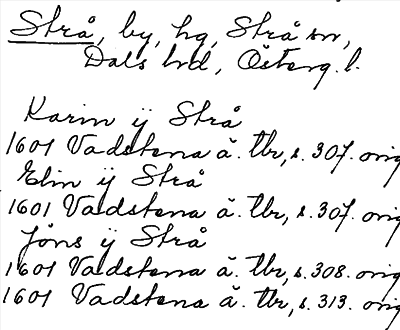 Strå, by, hg, Strå sn,
Dals hd, Österg. l.
Karin ÿ Strå
1601 Vadstena ä. tbr, s. 307. orig
Elin ÿ Strå
1601 Vadstena ä. tbr, s. 307. orig
Jöns ÿ Strå
1601 Vadstena ä. tbr, s. 308. orig
1601 Vadstena ä. tbr, s. 313. orig